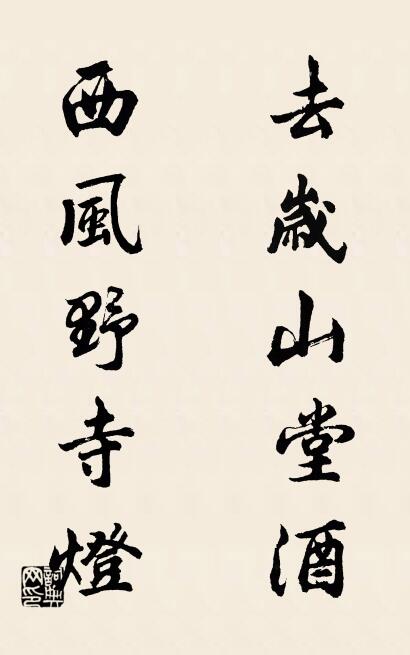 去歲山堂酒
西風野寺燈